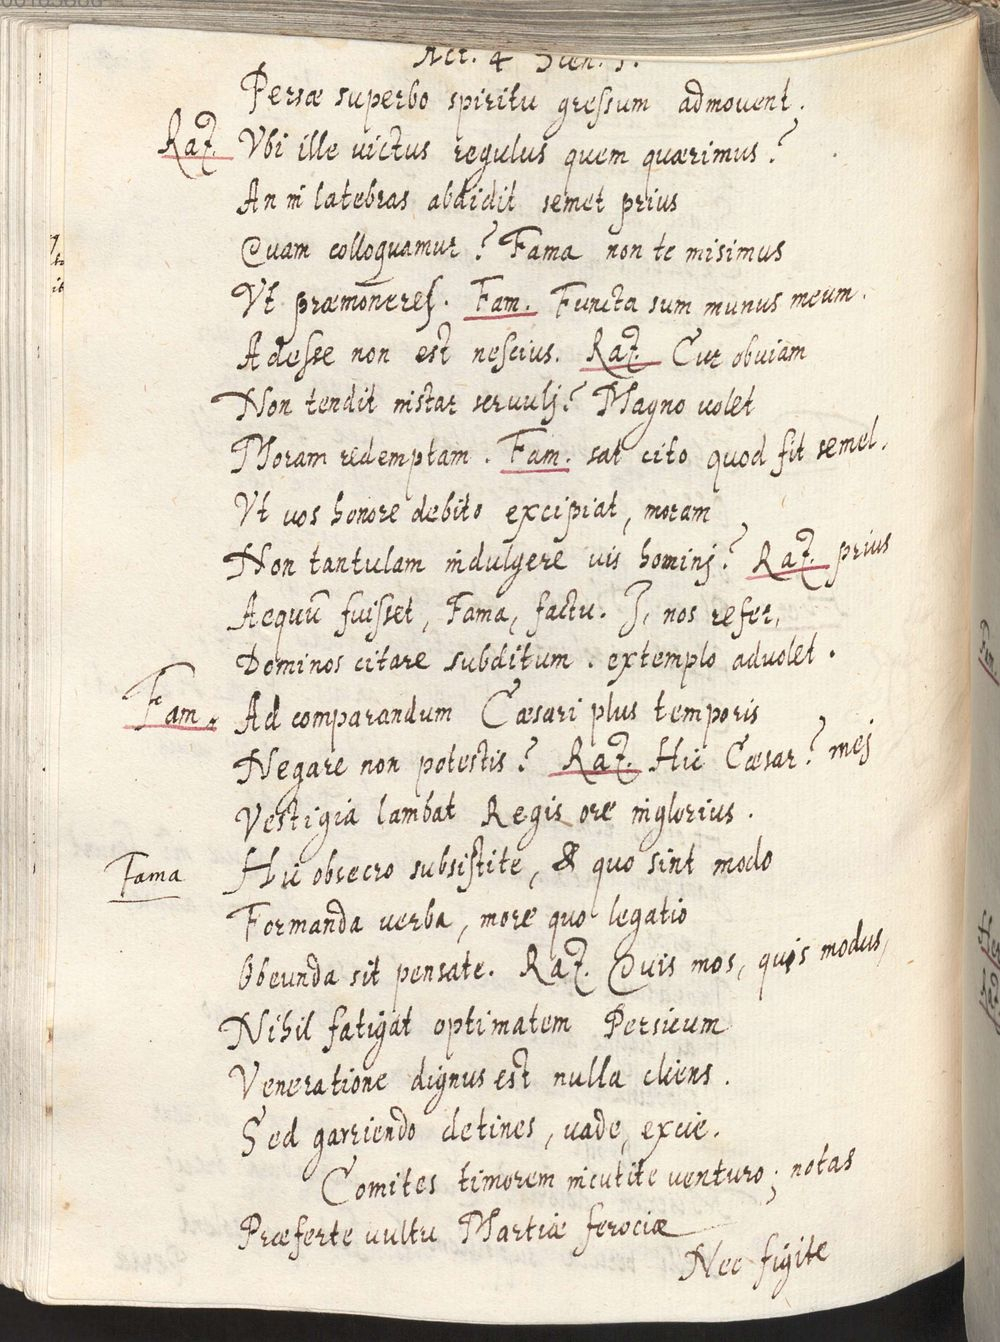 Act. 4 Scen. 5.
Persæ superbo spiritu gressum admovent.
Raz. Vbi ille victus regulus quem quærimus?
An in latebras abdidit semet prius
Quam colloquamur? Fama non te misimus
Vt præmoneres. Fam. Functa sum munus meum.
Adesse non est nescius. Raz. Cur obuiam
Non tendit instar seruulj? Magno uolet
Moram redemptam. Fam. sat cito quod fit semel.
Vt uos honore debito excipiat, moram
Non tantulam indulgere uis hominj? Raz. prius
Aequū fuisset, Fama, factu. I, nos refer,
Dominos citare subditum. extemplo aduolet.
Fam. Ad comparandum Cæsari plus temporis
Negare non potestis? Raz. Hic Cæsar? mej
Vestigia lambat Regis ore inglorius.
Fama Hic obsecro subsistite, & quo sint modo
Formanda uerba, more quo legatio
Obeunda sit pensate. Raz. Quis mos, quis modus,
Nihil fatigat optimatem Persicum
Veneratione dignus est nulla cliens.
Sed garriendo detines, uade, excie.
Comites timorem incutite venturo; notas
Præferte uultu Martiæ ferociæ
Nec figite